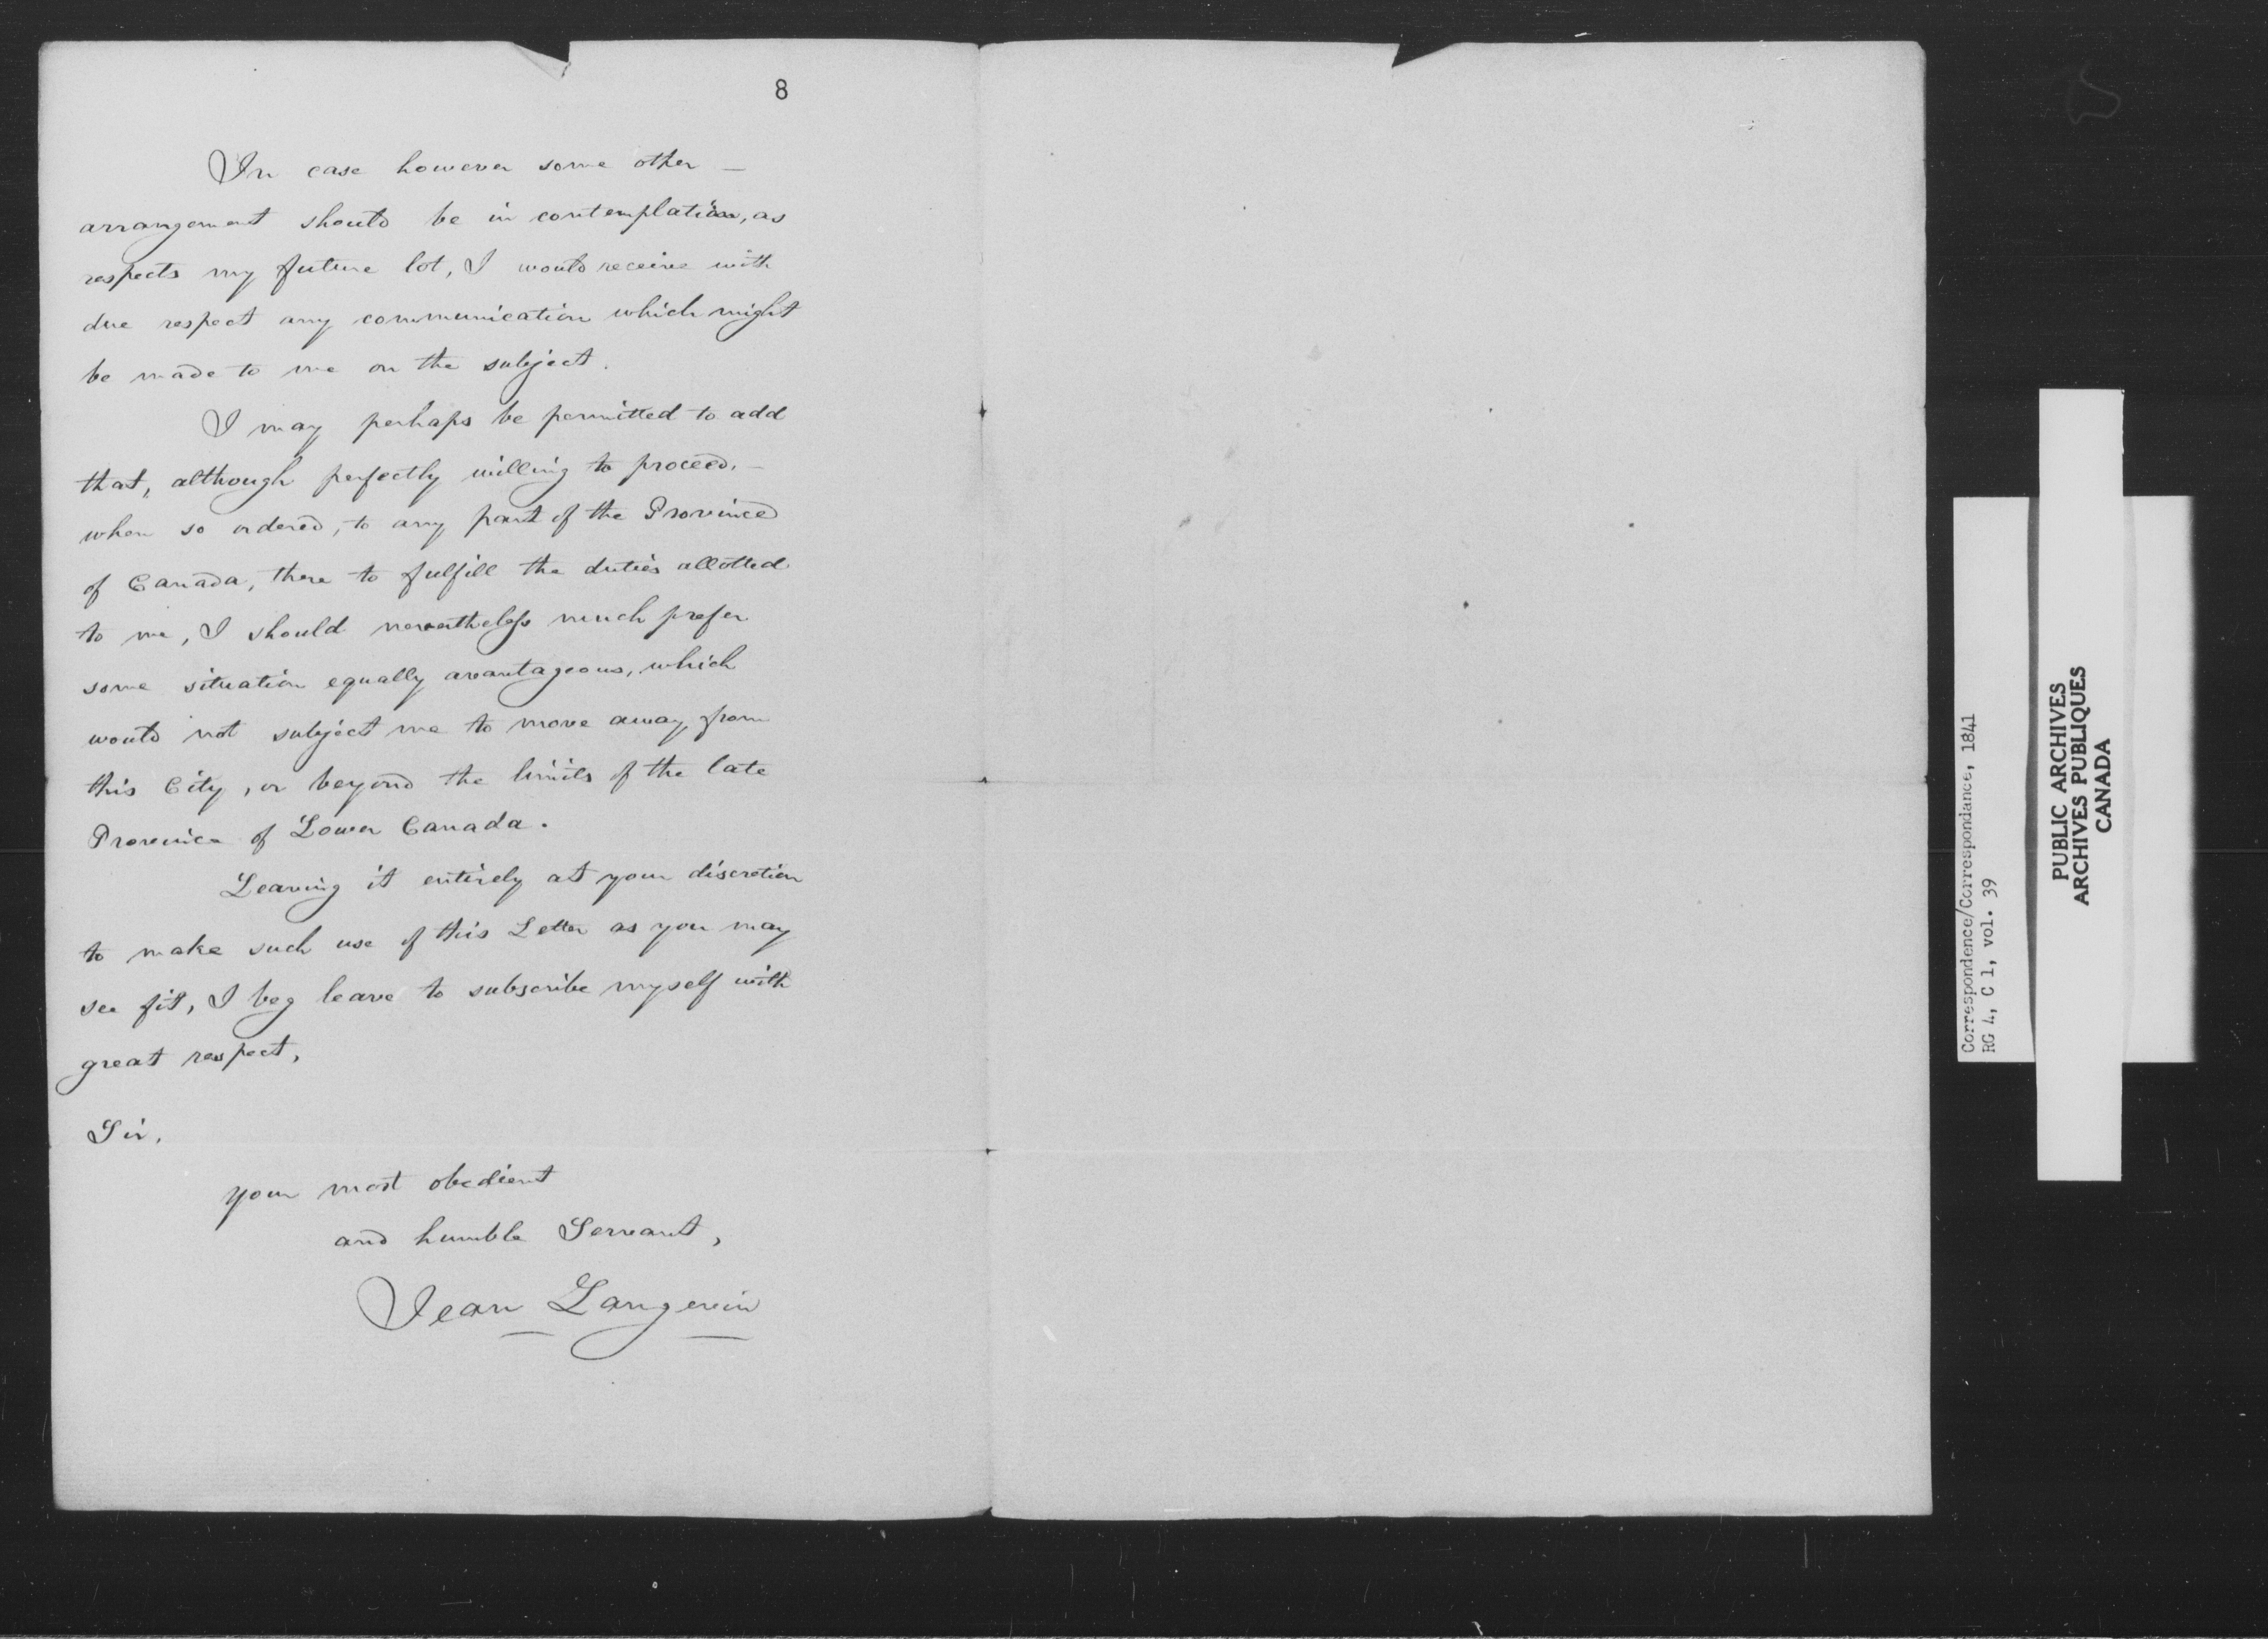 8
In case however some other —
arrangement should be in contemplation, as
respects my future lot, I would receive with
due respect any communication which might
be made to me on the subject.
I may perhaps be permitted to add
that, although perfectly willing to proceed, —
when so ordered, to any part of the Province
of Canada, there to fulfill the duties allotted
to me, I should nevertheless much prefer
some situation equally avantageous, which
would not subject me to move away from
this City, or beyond the limits of the late
Province of Lower Canada.
Leaving it entirely at your discretion
to make such use of this Letter as you may
see fit, I beg leave to subscribe myself with
great respect,
Sir,
your most obedient
and humble Servant,
Jean Langevin
Correspondence/Correspondance, 1841
RG 4, C 1, vol. 39
PUBLIC ARCHIVES
ARCHIVES PUBLIQUES
CANADA